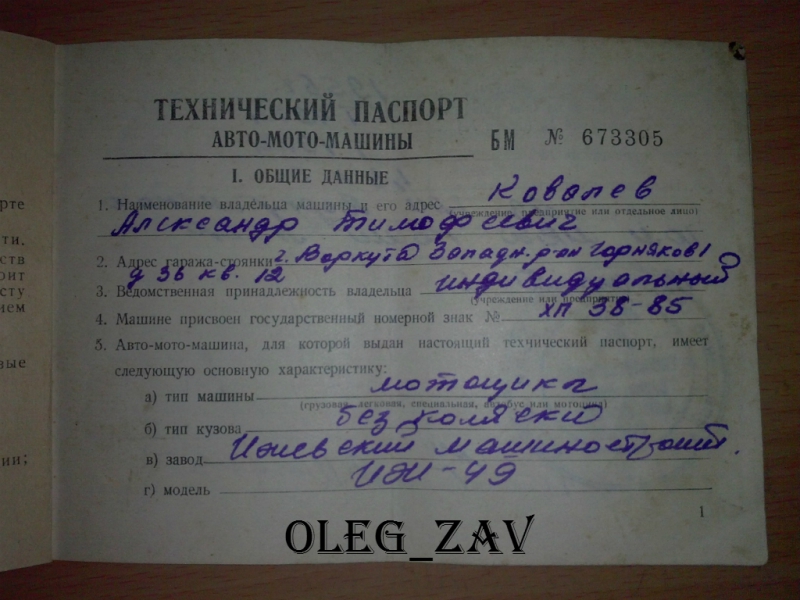 рте
ти.
ств
оит
сту
ием
вые
ии;
ТЕХНИЧЕСКИЙ ПАСПОРТ
АВТО-МОТО-МАШИНЫ
БМ № 673305
I. ОБЩИЕ ДАННЫЕ
1. Наименование владельца машины и его адрес Ковалев
(учреждение, предприятие или отдельное лицо)
Александр Тимофеевич
2. Адрес гаража-стоянки г. Воркута Западн. р-он Горняков
д 36 кв. 12
3. Ведомственная принадлежность владельца индивидуальный
(учреждение или предприятие)
4. Машине присвоен государственный номерной знак № ХП 38-85
5. Авто-мото-машина, для которой выдан настоящий технический паспорт, имеет
следующую основную характеристику:
а) тип машины мотоцикл
(грузовая, легковая, специальная, автобус или мотоцикл)
б) тип кузова без коляски
в) завод Ижевский машиностроит.
г) модель ИЖ-49
1
OLEG_ZAV